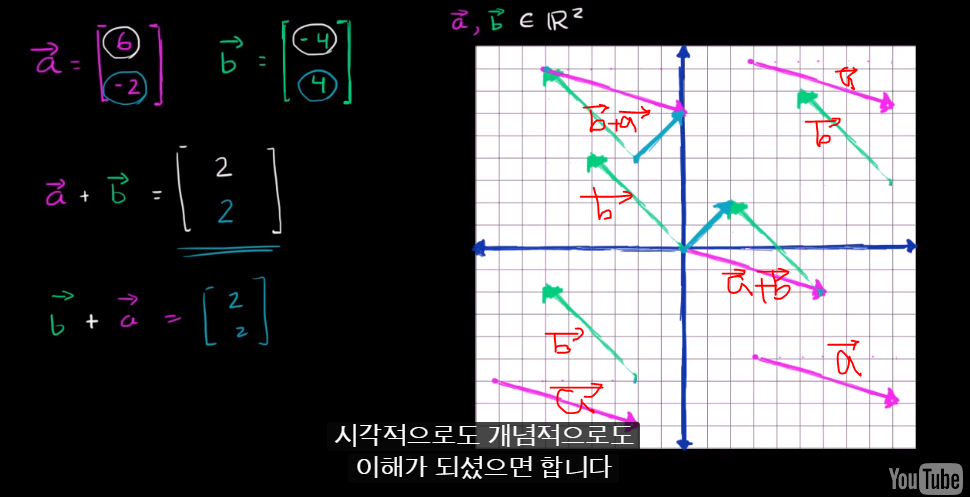 a⃗ = [6 -2]
b⃗ = [-4 4]
a⃗, b⃗ ∈ ℝ²
a⃗ + b⃗ = [2 2]
b⃗ + a⃗ = [2 2]
b⃗+a⃗
a⃗
b⃗
b⃗
a⃗+b⃗
b⃗
a⃗
a⃗
시각적으로도 개념적으로도
이해가 되셨으면 합니다
YouTube